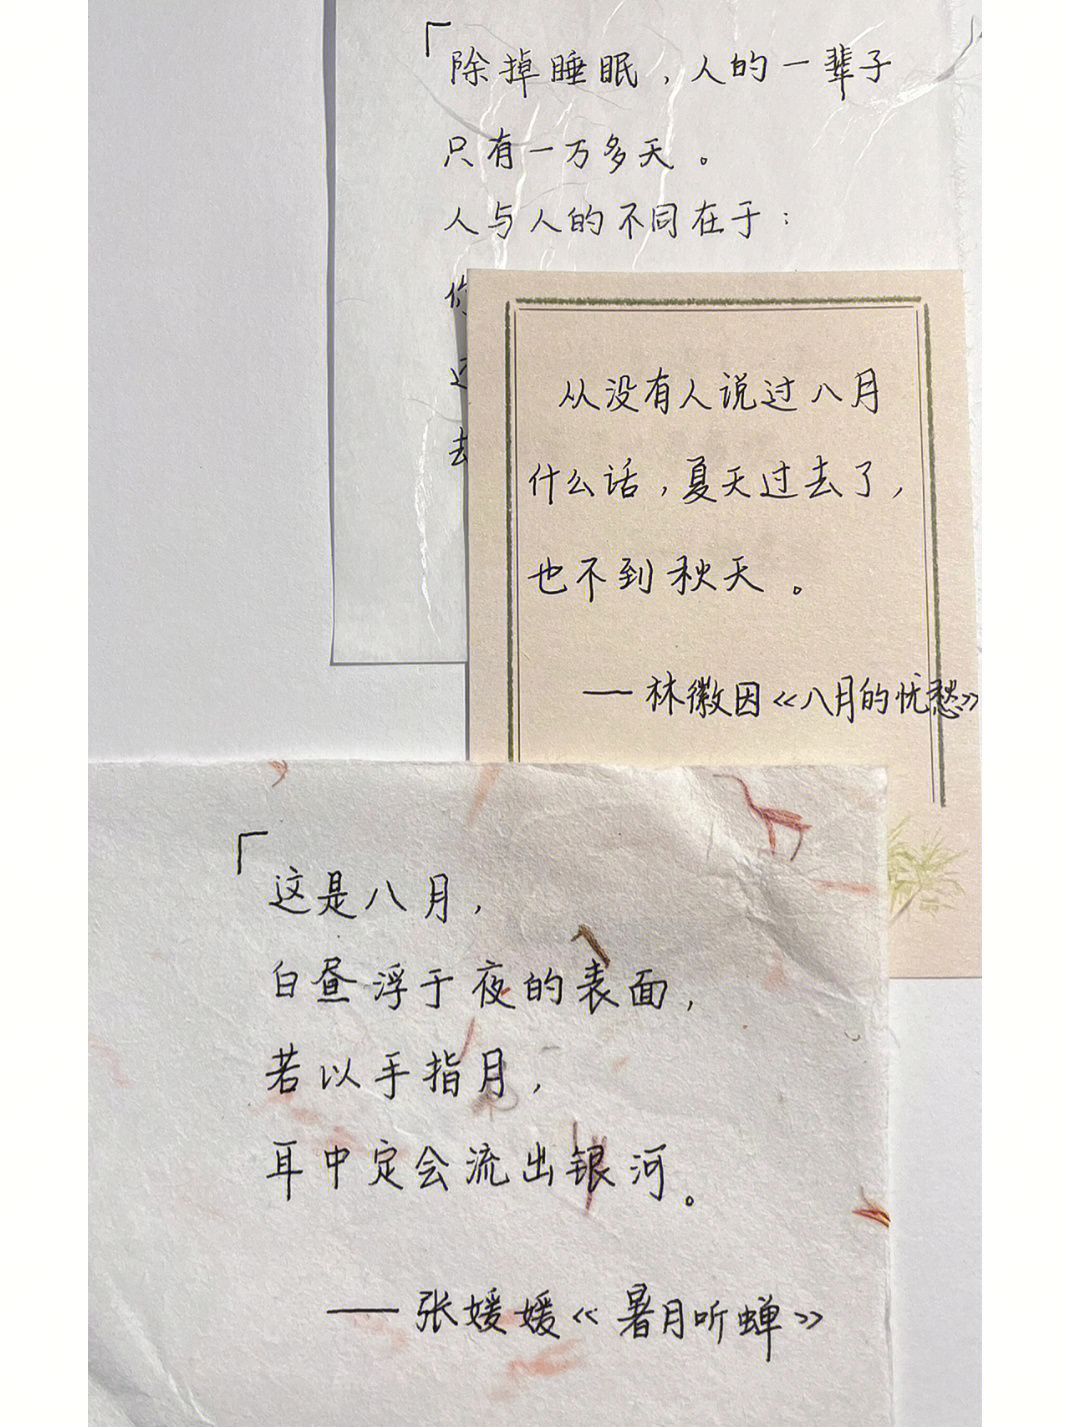 「除掉睡眠，人的一辈子
只有一万多天。
人与人的不同在于：
从没有人说过八月
什么话，夏天过去了，
也不到秋天。
——林徽因《八月的忧愁》
「这是八月，
白昼浮于夜的表面，
若以手指月，
耳中定会流出银河。
——张媛媛《暑月听蝉》